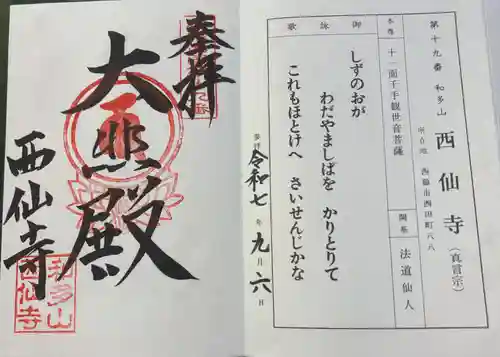 第十九番 和多山
西仙寺(真言宗)
所在地 西脇市西田町八八
本尊 十一面千手観世音菩薩
開基 法道仙人
御詠歌
しずのおが
わだやましばを かりとりて
これもほとけへ さいせんじかな
参拝 令和七年九月六日
奉拝
大悲殿
西仙寺
和多山
西仙寺